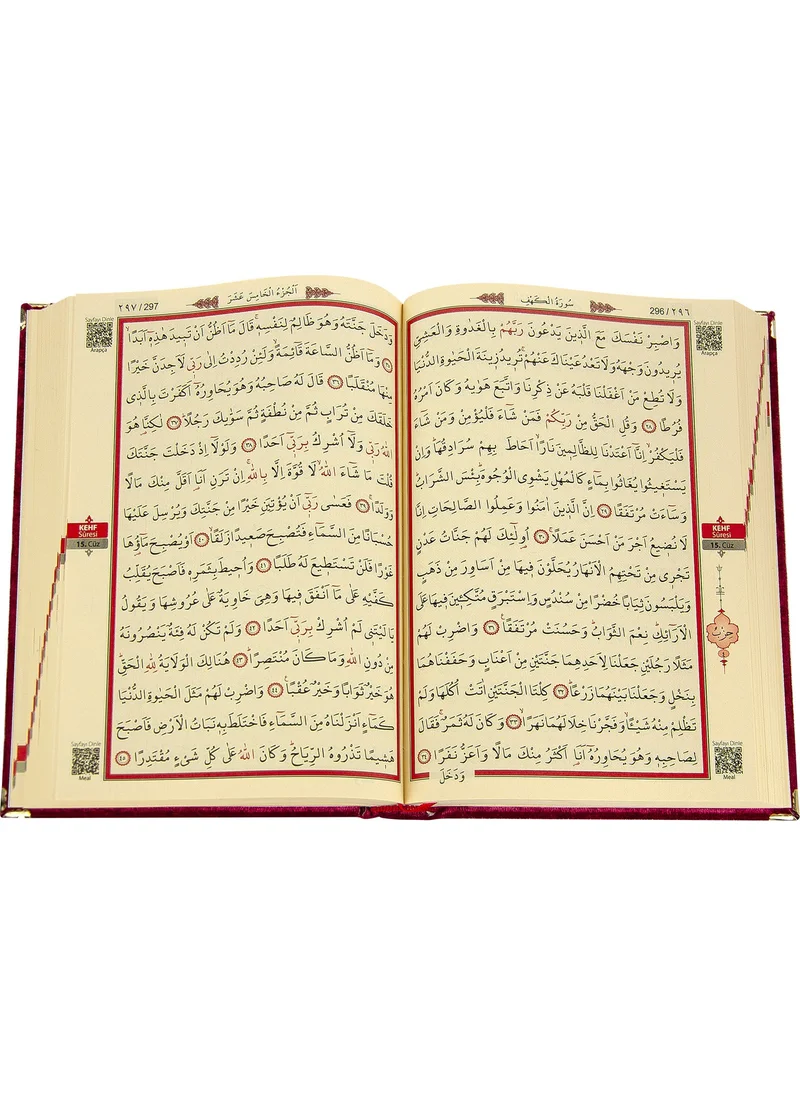 296 / ٢٩٦
سُورَةُ الْكَهْفِ
Sayfayı Dinle
Arapça
وَاصْبِرْ نَفْسَكَ مَعَ الَّذِينَ يَدْعُونَ رَبَّهُمْ بِالْغَدٰوةِ وَالْعَشِيِّ
يُرِيدُونَ وَجْهَهُ وَلَا تَعْدُ عَيْنَاكَ عَنْهُمْ تُرِيدُ زِينَةَ الْحَيٰوةِ الدُّنْيَا
وَلَا تُطِعْ مَنْ اَغْفَلْنَا قَلْبَهُ عَنْ ذِكْرِنَا وَاتَّبَعَ هَوٰيهُ وَكَانَ اَمْرُهُ
فُرُطًا ﴿٢٨﴾ وَقُلِ الْحَقُّ مِنْ رَبِّكُمْ فَمَنْ شَاءَ فَلْيُؤْمِنْ وَمَنْ شَاءَ
فَلْيَكْفُرْ اِنَّا اَعْتَدْنَا لِلظَّالِمِينَ نَارًا اَحَاطَ بِهِمْ سُرَادِقُهَا وَاِنْ
يَسْتَغِيثُوا يُغَاثُوا بِمَاءٍ كَالْمُهْلِ يَشْوِي الْوُجُوهَ بِئْسَ الشَّرَابُ
وَسَاءَتْ مُرْتَفَقًا ﴿٢٩﴾ اِنَّ الَّذِينَ اٰمَنُوا وَعَمِلُوا الصَّالِحَاتِ اِنَّا
لَا نُضِيعُ اَجْرَ مَنْ اَحْسَنَ عَمَلًا ﴿٣٠﴾ اُولٰئِكَ لَهُمْ جَنَّاتُ عَدْنٍ
تَجْرِي مِنْ تَحْتِهِمُ الْاَنْهَارُ يُحَلَّوْنَ فِيهَا مِنْ اَسَاوِرَ مِنْ ذَهَبٍ
وَيَلْبَسُونَ ثِيَابًا خُضْرًا مِنْ سُنْدُسٍ وَاِسْتَبْرَقٍ مُتَّكِئِينَ فِيهَا عَلَى
الْاَرَائِكِ نِعْمَ الثَّوَابُ وَحَسُنَتْ مُرْتَفَقًا ﴿٣١﴾ وَاضْرِبْ لَهُمْ
مَثَلًا رَجُلَيْنِ جَعَلْنَا لِاَحَدِهِمَا جَنَّتَيْنِ مِنْ اَعْنَابٍ وَحَفَفْنَاهُمَا
بِنَخْلٍ وَجَعَلْنَا بَيْنَهُمَا زَرْعًا ﴿٣٢﴾ كِلْتَا الْجَنَّتَيْنِ اٰتَتْ اُكُلَهَا وَلَمْ
تَظْلِمْ مِنْهُ شَيْـًٔا وَفَجَّرْنَا خِلَالَهُمَا نَهَرًا ﴿٣٣﴾ وَكَانَ لَهُ ثَمَرٌ فَقَالَ
لِصَاحِبِهِ وَهُوَ يُحَاوِرُهُ اَنَا اَكْثَرُ مِنْكَ مَالًا وَاَعَزُّ نَفَرًا ﴿٣٤﴾
وَدَخَلَ
KEHF
Sûresi
15. Cüz
حزب
٤
Sayfayı Dinle
Meal
٢٩٧ / 297
اَلْجُزْءُ الْخَامِسَ عَشَرَ
Sayfayı Dinle
Arapça
وَدَخَلَ جَنَّتَهُ وَهُوَ ظَالِمٌ لِنَفْسِهِ قَالَ مَا اَظُنُّ اَنْ تَبِيدَ هٰذِهِ اَبَدًا
﴿٣٥﴾ وَمَا اَظُنُّ السَّاعَةَ قَائِمَةً وَلَئِنْ رُدِدْتُ اِلٰى رَبِّي لَاَجِدَنَّ خَيْرًا
مِنْهَا مُنْقَلَبًا ﴿٣٦﴾ قَالَ لَهُ صَاحِبُهُ وَهُوَ يُحَاوِرُهُ اَكَفَرْتَ بِالَّذِي
خَلَقَكَ مِنْ تُرَابٍ ثُمَّ مِنْ نُطْفَةٍ ثُمَّ سَوّٰيكَ رَجُلًا ﴿٣٧﴾ لٰكِنَّا هُوَ
اللّٰهُ رَبِّي وَلَا اُشْرِكُ بِرَبِّي اَحَدًا ﴿٣٨﴾ وَلَوْلَا اِذْ دَخَلْتَ جَنَّتَكَ
قُلْتَ مَا شَاءَ اللّٰهُ لَا قُوَّةَ اِلَّا بِاللّٰهِ اِنْ تَرَنِ اَنَا اَقَلَّ مِنْكَ مَالًا
وَوَلَدًا ﴿٣٩﴾ فَعَسٰى رَبِّي اَنْ يُؤْتِيَنِ خَيْرًا مِنْ جَنَّتِكَ وَيُرْسِلَ عَلَيْهَا
حُسْبَانًا مِنَ السَّمَاءِ فَتُصْبِحَ صَعِيدًا زَلَقًا ﴿٤٠﴾ اَوْ يُصْبِحَ مَاؤُهَا
غَوْرًا فَلَنْ تَسْتَطِيعَ لَهُ طَلَبًا ﴿٤١﴾ وَاُحِيطَ بِثَمَرِهِ فَاَصْبَحَ يُقَلِّبُ
كَفَّيْهِ عَلٰى مَا اَنْفَقَ فِيهَا وَهِيَ خَاوِيَةٌ عَلٰى عُرُوشِهَا وَيَقُولُ
يَا لَيْتَنِي لَمْ اُشْرِكْ بِرَبِّي اَحَدًا ﴿٤٢﴾ وَلَمْ تَكُنْ لَهُ فِئَةٌ يَنْصُرُونَهُ
مِنْ دُونِ اللّٰهِ وَمَا كَانَ مُنْتَصِرًا ﴿٤٣﴾ هُنَالِكَ الْوَلَايَةُ لِلّٰهِ الْحَقِّ
هُوَ خَيْرٌ ثَوَابًا وَخَيْرٌ عُقْبًا ﴿٤٤﴾ وَاضْرِبْ لَهُمْ مَثَلَ الْحَيٰوةِ الدُّنْيَا
كَمَاءٍ اَنْزَلْنَاهُ مِنَ السَّمَاءِ فَاخْتَلَطَ بِهِ نَبَاتُ الْاَرْضِ فَاَصْبَحَ
هَشِيمًا تَذْرُوهُ الرِّيَاحُ وَكَانَ اللّٰهُ عَلٰى كُلِّ شَيْءٍ مُقْتَدِرًا ﴿٤٥﴾
KEHF
Sûresi
15. Cüz
Sayfayı Dinle
Meal